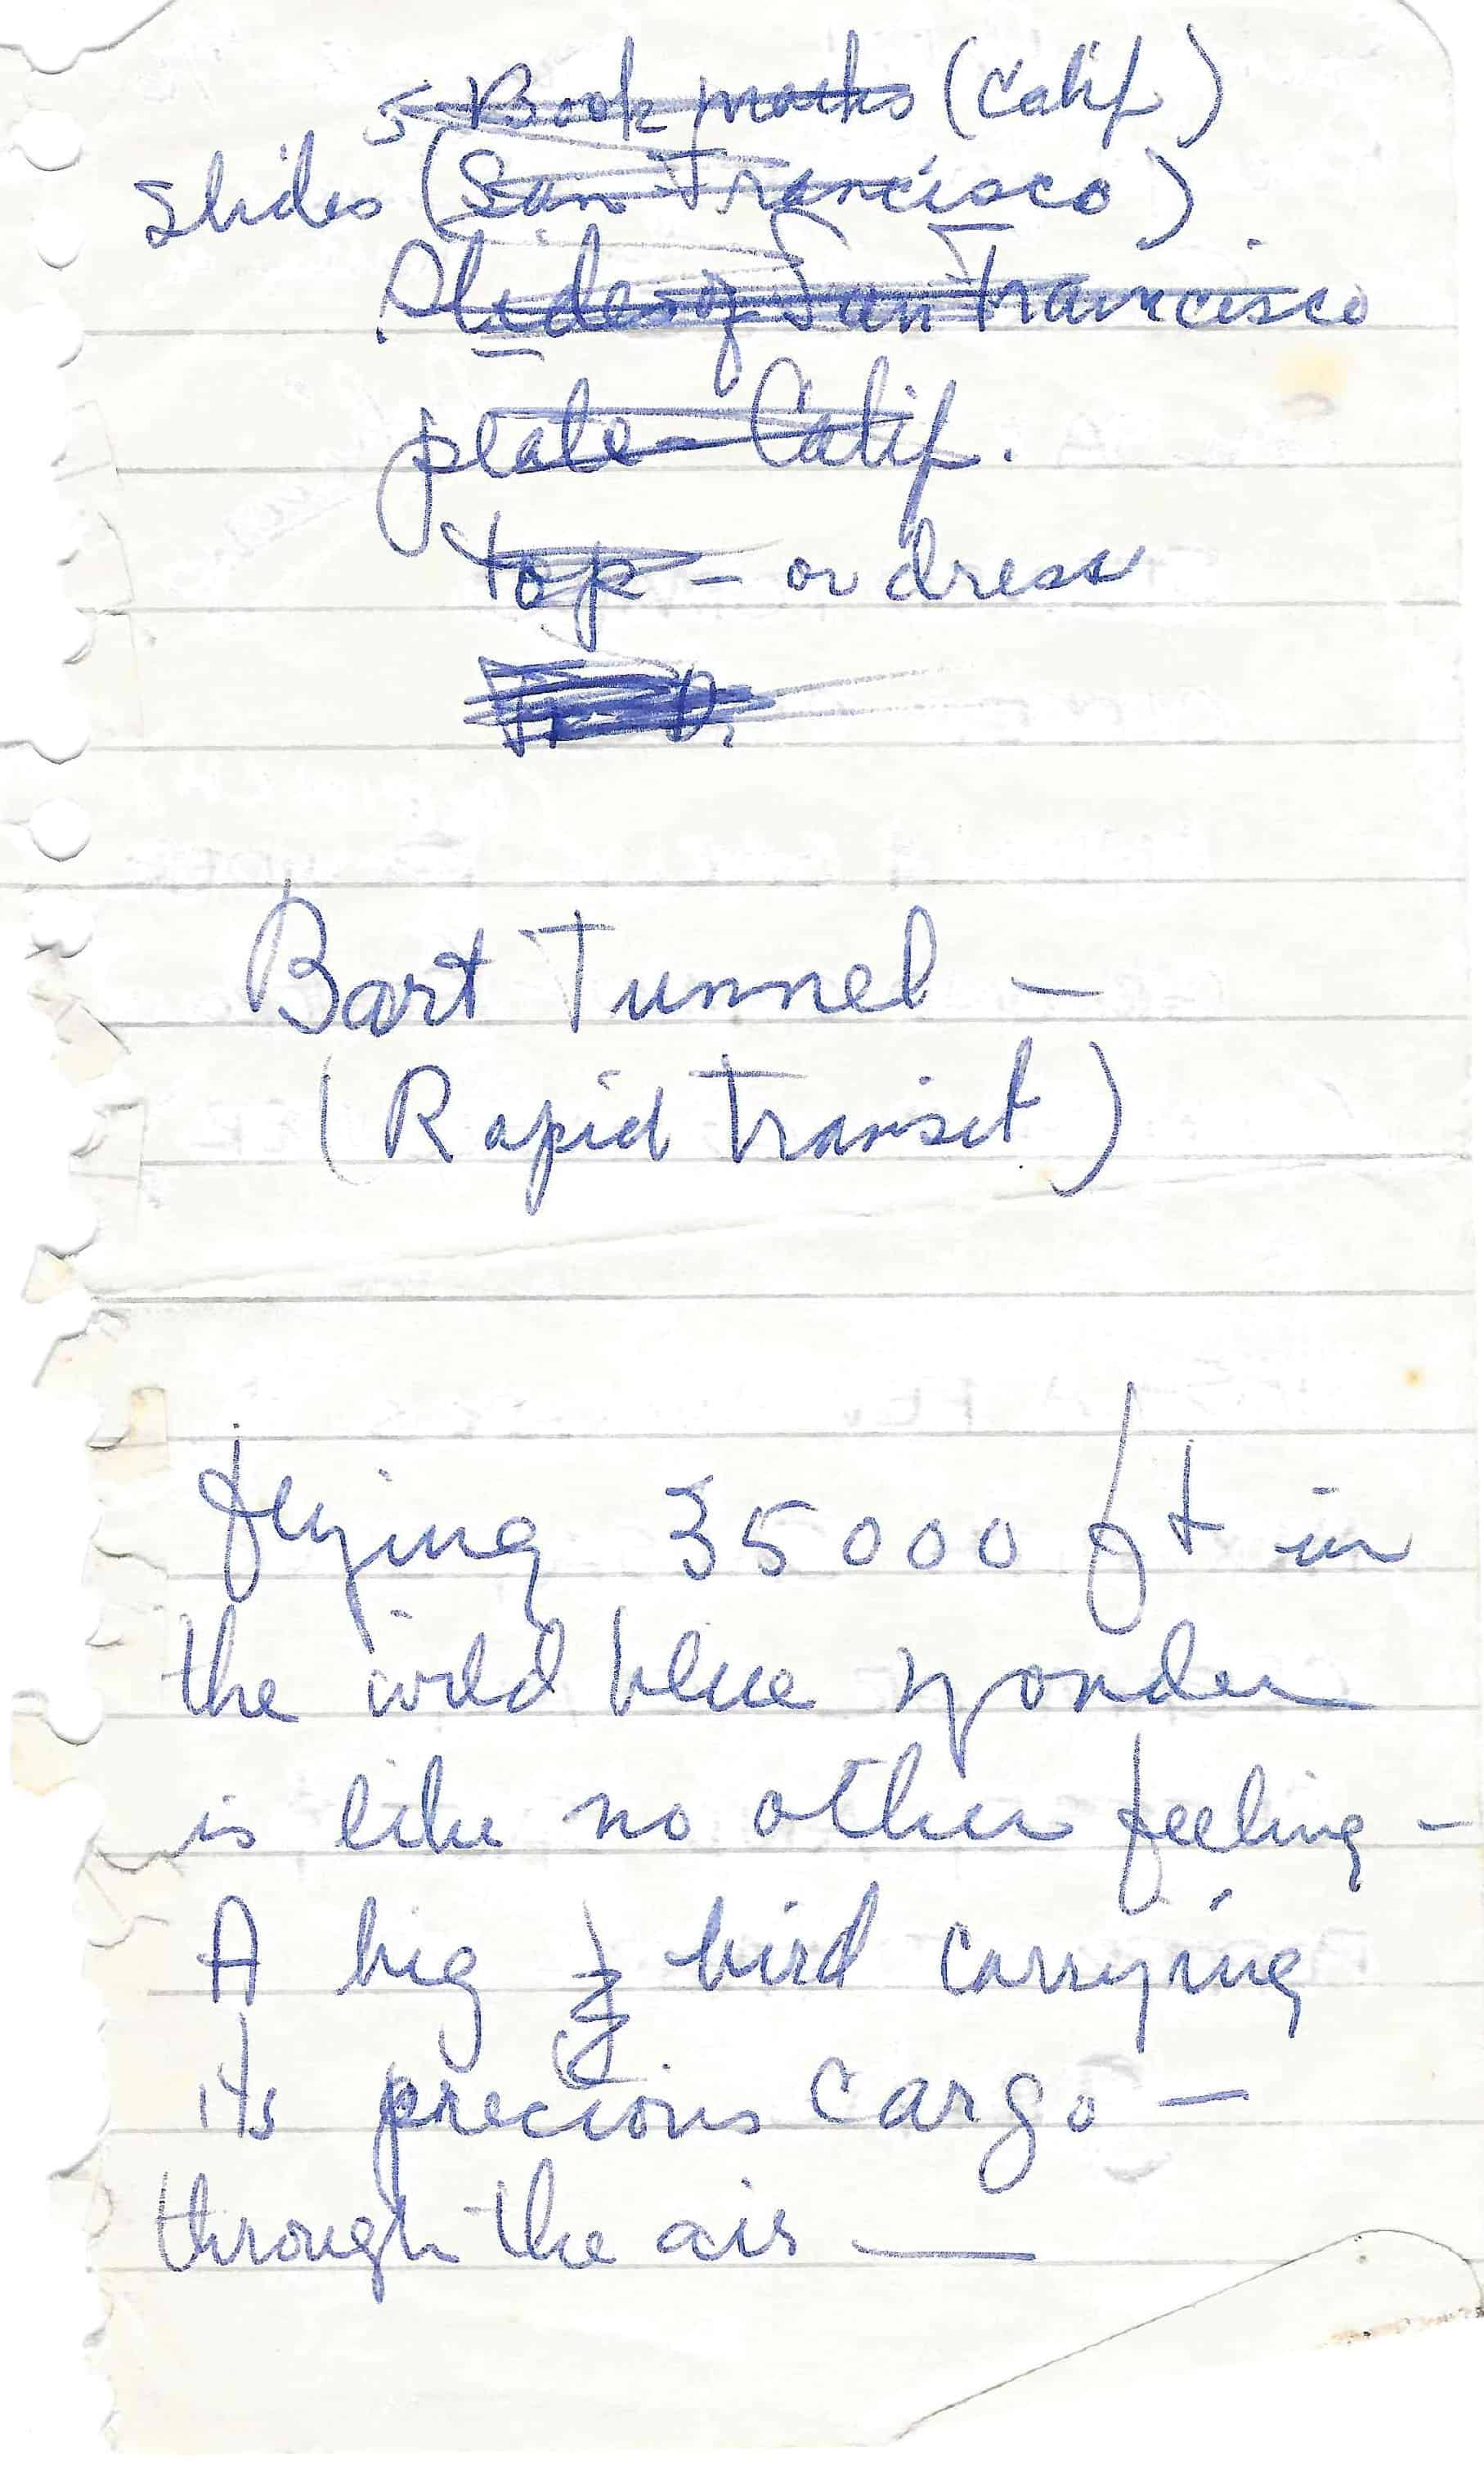 5 Book marks (Calif)
Slides (San Francisco)
Slides of San Francisco
plate - Calif.
top - or dress
Bart Tunnel -
(Rapid Transit)
flying 35000 ft in
the wild blue yonder
is like no other feeling -
A big bird carrying
its precious cargo -
through the air —